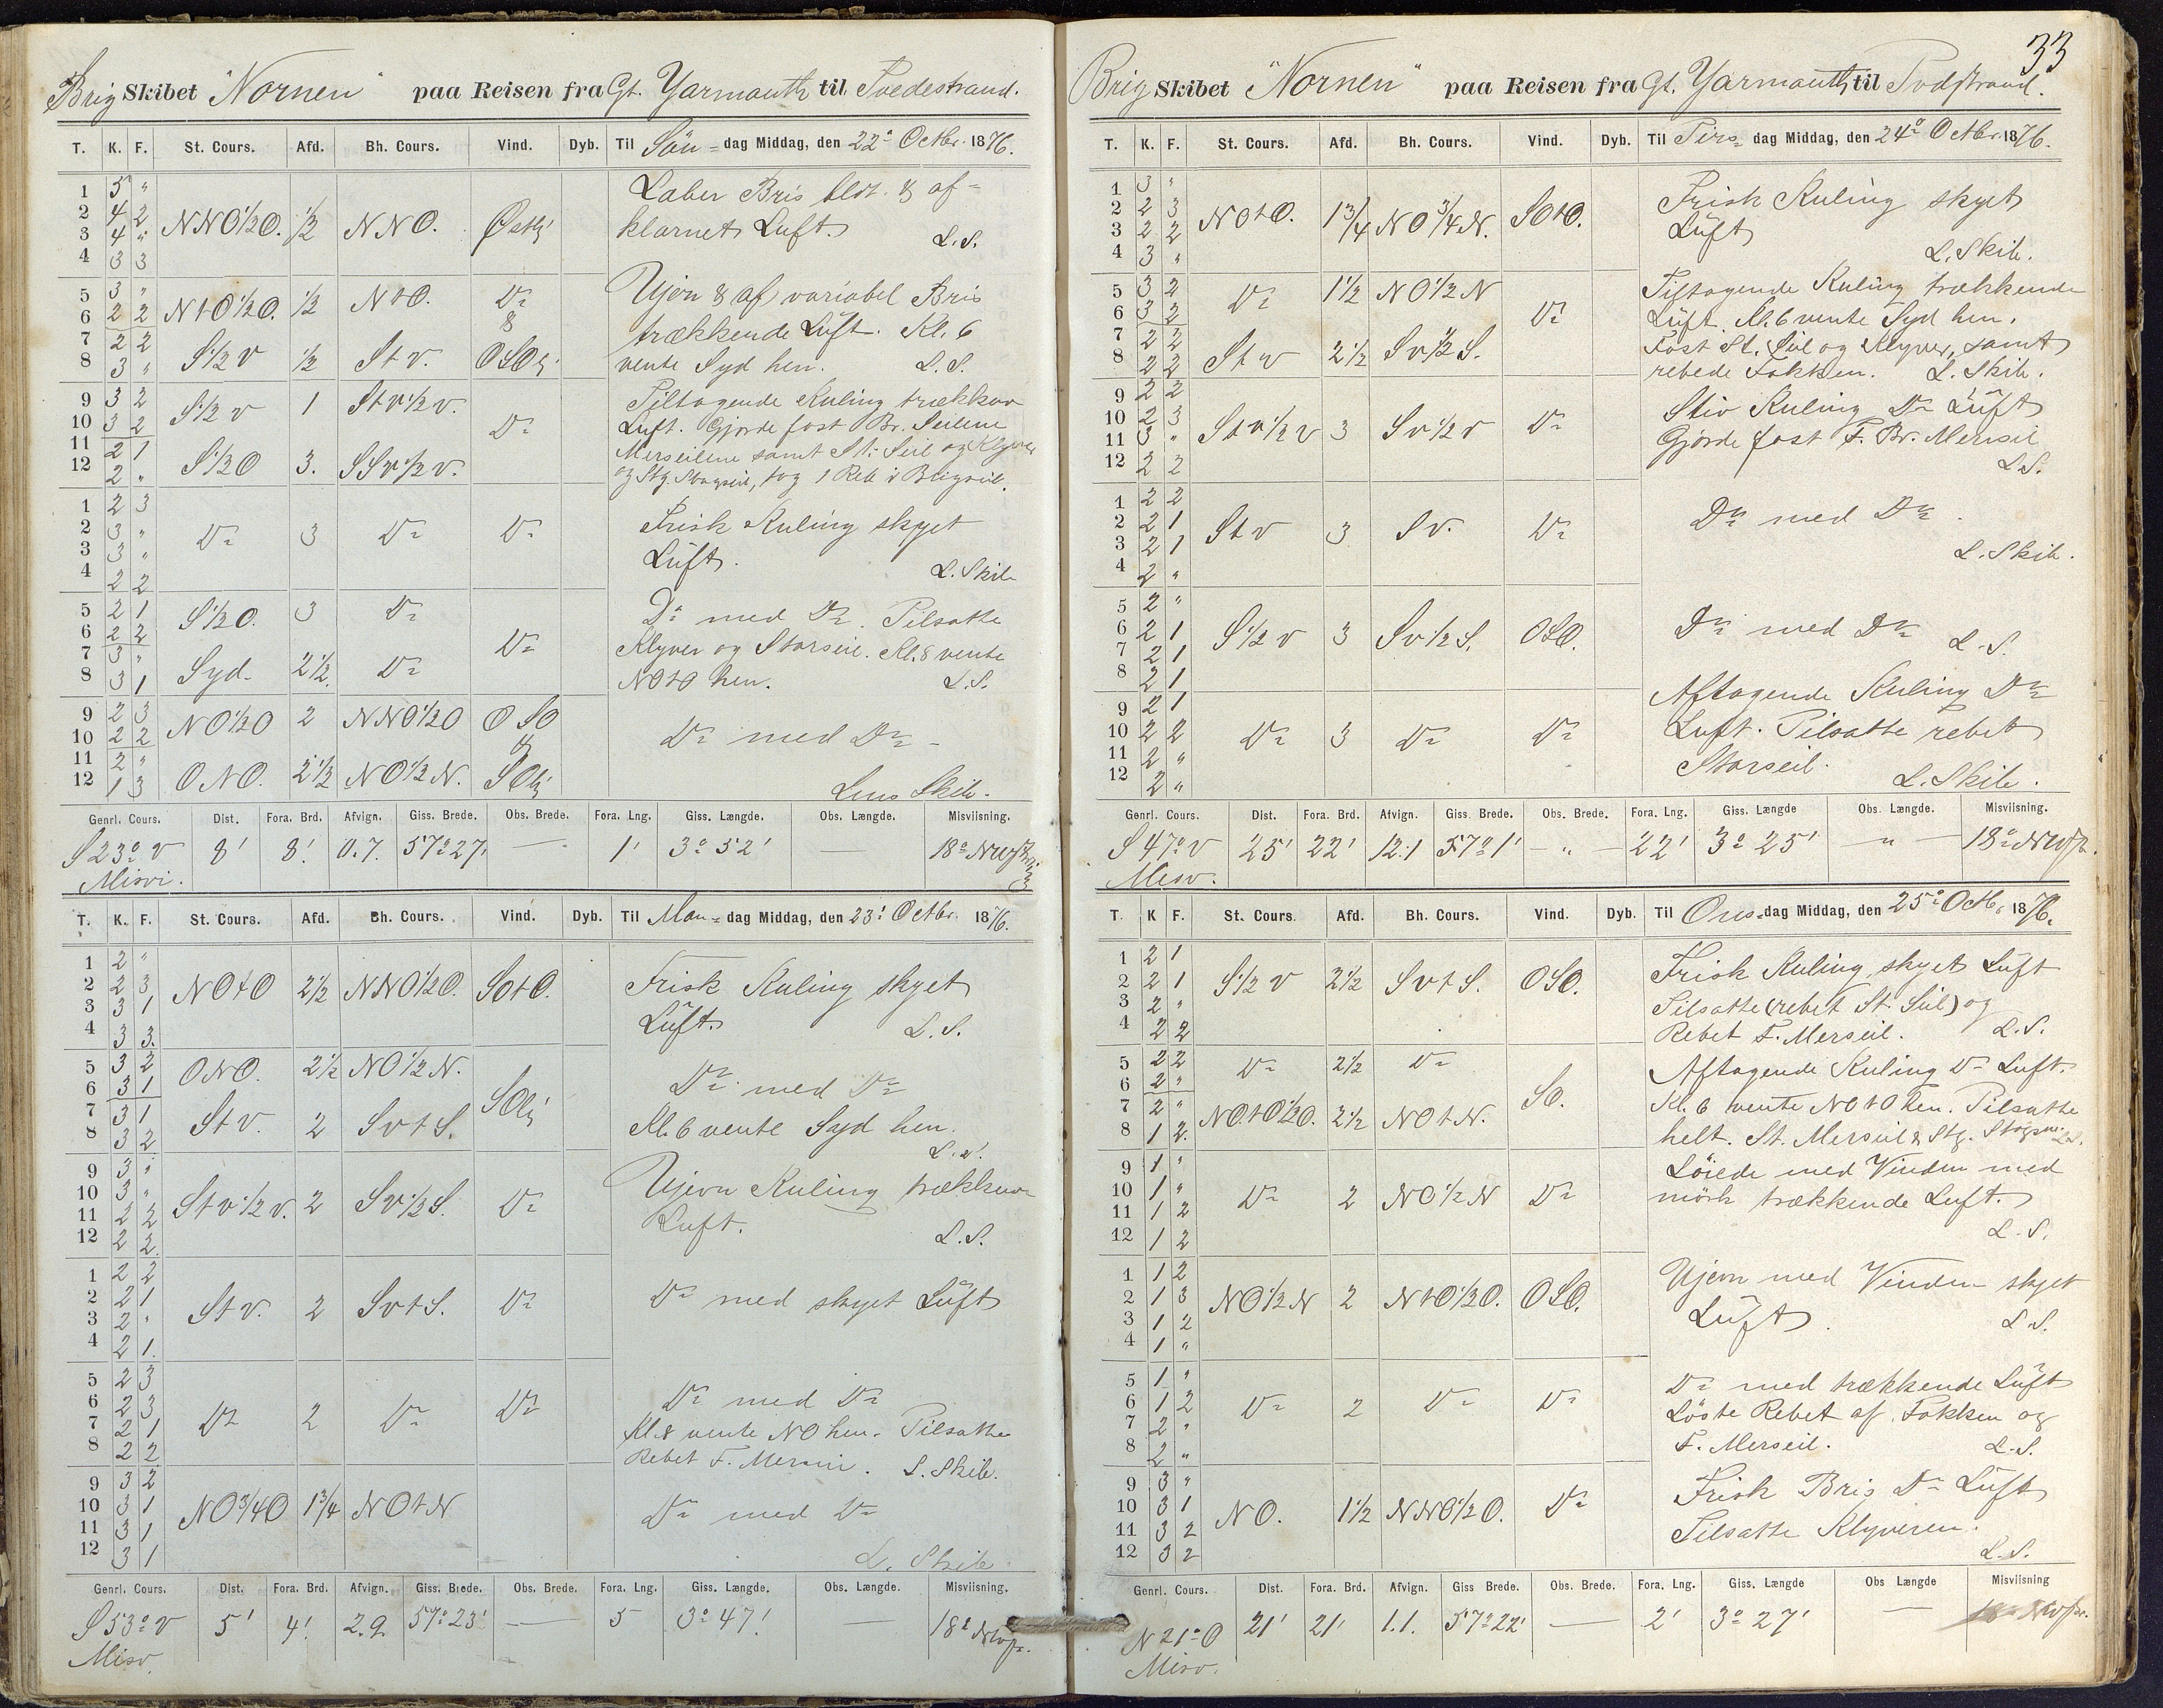 Brig Skibet "Nornen" paa Reisen fra Gt. Yarmouth til Tvedestrand.
T. K. F. St. Cours. Afd. Bh. Cours. Vind. Dyb. Til Sön = dag Middag, den 22° Octbr. 1876.
1 5 "
2 4 2
3 4 "
4 3 3
NNO½O. ½ NNO. Østlj
Laber Bris bldt. & af=
klarnet Luft.
L.S.
5 3 "
6 2 2
7 2 2
8 3 "
NtO½O. ½ NtO. Do
&
S½V ½ StV. OSOlj
Ujevn & af variabel Bris
trækkende Luft. Kl. 6
vente Syd hen. L.S.
9 3 2
10 3 2
11 2 1
12 2 "
S½V 1 StV½V. Do
S½O 3. SSV½V.
Tiltagende Kuling trækkende
Luft. Gjorde fast Br. Seilene
Merseilene samt St. Seil og Klyver
og Stg. Stagseil, tog 1 Reb i Brigseil.
1 2 3
2 3 "
3 3 "
4 2 2
Do 3 Do Do
Frisk Kuling skyet
Luft.
L. Skib
5 2 1
6 2 2
7 3 "
8 3 1
S½O. 3 Do Do
Syd. 2½. Do
Do med Do. Tilsatte
Klyver og Storseil. Kl. 8 vente
NOtO hen. L.S.
9 2 3
10 2 2
11 2 "
12 1 3
NO½O 2 NNO½O OSO
&
ONO. 2½ NO½N. SOlj
Do med Do
Lens Skib.
Genrl. Cours. Dist. Fora. Brd. Afvign. Giss. Brede. Obs. Brede. Fora. Lng. Giss. Længde. Obs. Længde. Misviisning.
S 23° V 8' 8' 0.7. 57° 27' — 1' 3° 52' — 18° NWpr.
Misvi.
T. K. F. St. Cours. Afd. Bh. Cours. Vind. Dyb. Til Man = dag Middag, den 23' Octbr. 1876.
1 2 "
2 2 3
3 3 1
4 3 3.
NOtO 2½ NNO½O. SOtO.
Frisk Kuling skyet
Luft.
L.S.
5 3 2
6 3 1
7 3 1
8 3 2
ONO. 2½ NO½N. SOlj
StV. 2 SVtS.
Do med Do
Kl. 6 vente Syd hen.
L.S.
9 3 "
10 3 "
11 2 2
12 2 2.
StV½V. 2 SV½S. Do
Ujevn Kuling trækkende
Luft.
L.S.
1 2 2
2 2 1
3 2 "
4 2 1.
StV. 2 SVtS. Do
Do med skyet Luft
5 2 3
6 2 3
7 2 1
8 2 2
Do 2 Do Do
Do med Do
Kl. 8 vente NO hen. Tilsatte
Rebet F. Merseil. L. Skib.
9 3 2
10 3 1
11 3 1
12 3 1
NO¾O 1¾ NOtN
Do med Do
L. Skib
Genrl. Cours. Dist. Fora. Brd. Afvign. Giss. Brede. Obs. Brede. Fora. Lng. Giss. Længde. Obs. Længde. Misviisning.
S 53° V 5' 4' 2.9. 57° 23' — 5 3° 47' — 18° NWpr.
Misv.
33
Brig Skibet "Nornen" paa Reisen fra Gt. Yarmouth til Tvdstrand.
T. K. F. St. Cours. Afd. Bh. Cours. Vind. Dyb. Til Tirs= dag Middag, den 24° Octbr. 1876.
1 3 "
2 2 3
3 2 2
4 3 "
NOtO. 1¾ NO¾N. SOtO.
Frisk Kuling skyet
Luft
L. Skib.
5 3 2
6 3 2
7 2 2
8 2 2
Do 1½ NO½N Do
StV 2½ SV½S.
Tiltagende Kuling trækkende
Luft. Kl. 6 vente Syd hen.
Fast St. Seil og Klyver, samt
rebede Fokken. L. Skib.
9 2 2
10 2 3
11 3 "
12 2 2
StV½V 3 SV½V Do
Stiv Kuling Do Luft
Gjorde fast F. Br. Merseil
L.S.
1 2 2
2 2 1
3 2 1
4 2 "
StV 3 SV. Do
Do med Do.
L. Skib.
5 2 "
6 2 1
7 2 1
8 2 1
S½V 3 SV½S. OSO.
Do med Do L.S.
9 2 1
10 2 2
11 2 "
12 2 "
Do 3 Do Do
Aftagende Kuling Do
Luft. Tilsatte rebet
Storseil.
L. Skib.
Genrl. Cours. Dist. Fora. Brd. Afvign. Giss. Brede. Obs. Brede. Fora. Lng. Giss. Længde Obs. Længde. Misviisning.
S 47° V 25' 22' 12.1 57° 1' — " — 22' 3° 25' " — 18° NWpr.
Misv.
T. K F. St. Cours. Afd. Bh. Cours. Vind. Dyb. Til Ons= dag Middag, den 25° Octb. 1876.
1 2 1
2 2 1
3 2 "
4 2 2
S½V 2½ SVtS. OSO.
Frisk Kuling skyet Luft
Tilsatte (rebet St. Seil) og
Rebet F. Merseil. L.S.
5 2 2
6 2 "
7 2 "
8 1 2.
Do 2½ Do SO.
NOtO½O. 2½ NOtN.
Aftagende Kuling Do Luft.
Kl. 6 vente NOtO hen. Tilsatte
helt. St. Merseil & Stg. Stagseil L.S.
9 1 "
10 1 "
11 1 2
12 1 2
Do 2 NO½N Do
Löiede med Vinden med
mörk trækkende Luft.
L.S.
1 1 2
2 1 3
3 1 2
4 1 "
NO½N 2 NtO½O. OSO.
Ujevn med Vinden skyet
Luft.
L.S.
5 1 "
6 1 2
7 2 "
8 2 "
Do 2 Do Do
Do med trækkende Luft
Löste Rebet af Fokken og
F. Merseil. L.S.
9 3 "
10 3 1
11 3 2
12 3 2
NO. 1½ NNO½O. Do
Frisk Bris Do Luft
Tilsatte Klyveren.
L.S.
Genrl. Cours. Dist. Fora. Brd. Afvign. Giss Brede. Obs. Brede. Fora. Lng. Giss. Længde Obs Længde Misviisning
N 21° O 21' 21' 1.1. 57° 22' — 2' 3° 27' — 18° NWpr.
Misv.